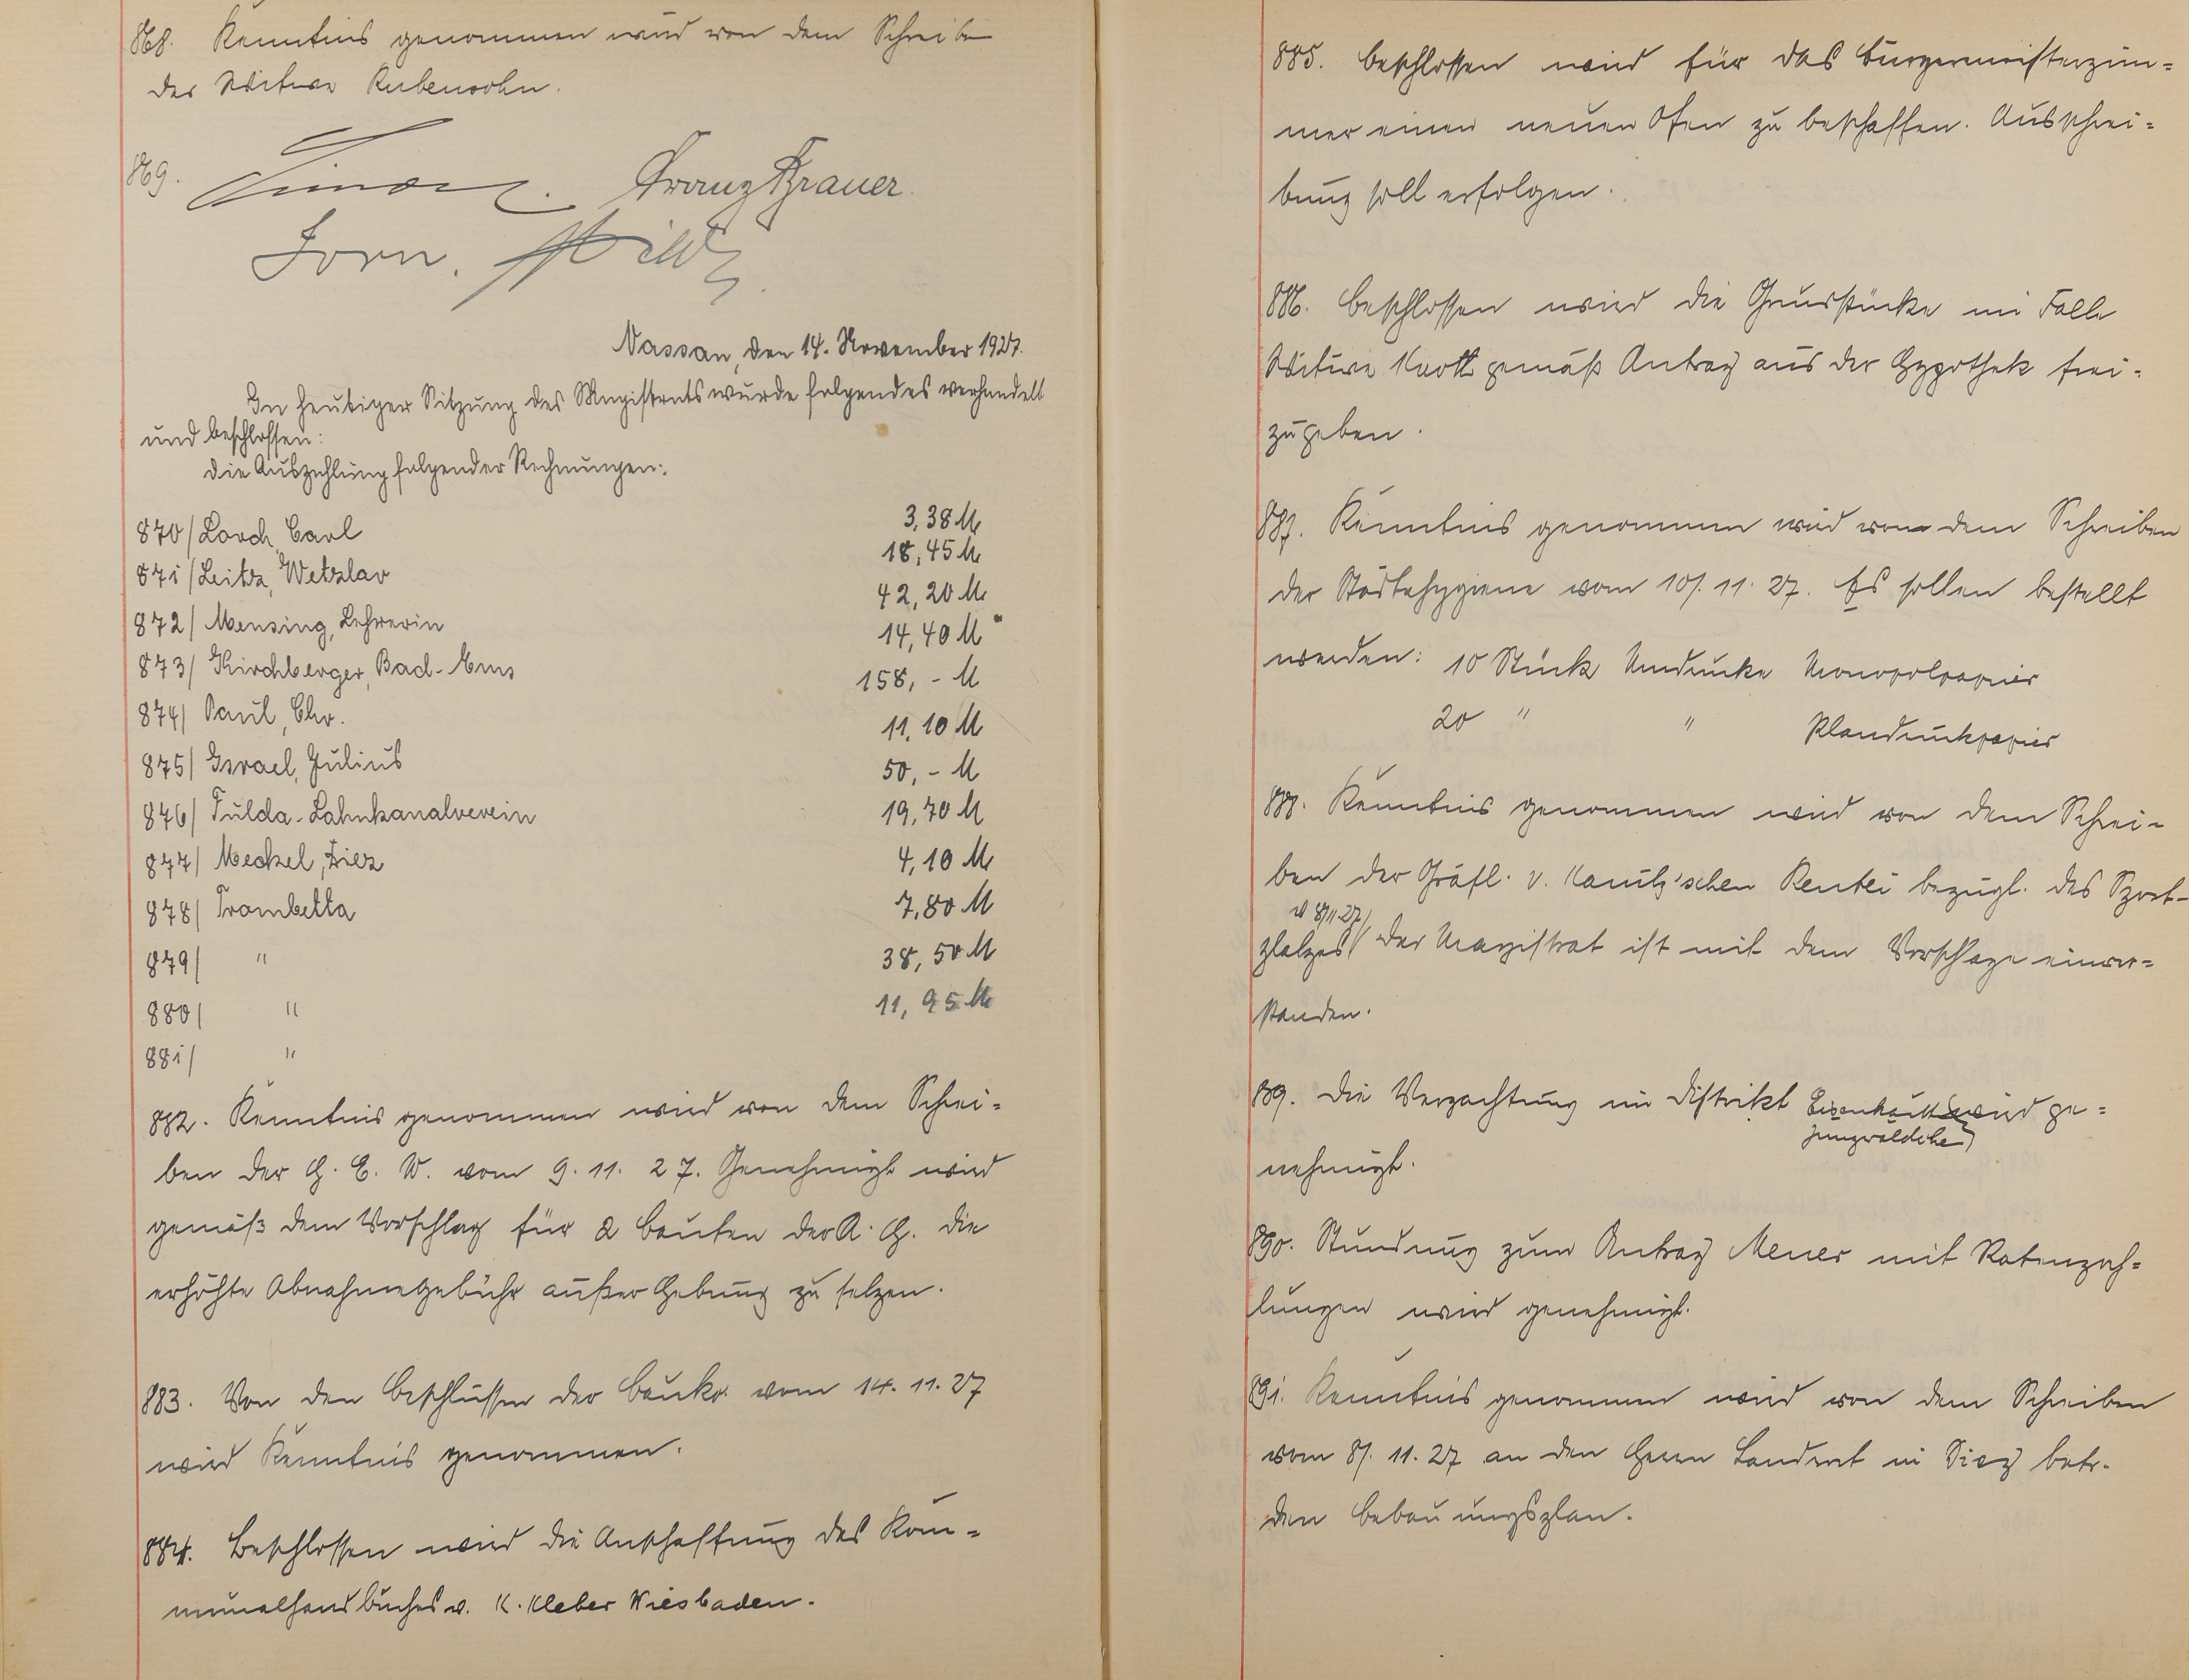 868. Kenntnis genommen wird von dem Schreiben
der Witwe Rubensohn.
869.
Franz Brauer.
Nassau, den 14. November 1927.
In heutiger Sitzung des Magistrats wurde folgendes verhandelt
und beschlossen:
die Auszahlung folgender Rechnungen:
870/ Lorch, Carl 3,38 M
871/ Leitz, Wetzlar 18,45 M
872/ Mensing, Lehrerin 42,20 M
873/ Kirchberger, Bad-Ems 14,40 M
874/ Paul, Chr. 158,- M
875/ Israel, Julius 11,10 M
876/ Fulda-Lahnkanalverein 50,- M
877/ Meckel, Diez 19,70 M
878/ Trombetta 4,10 M
879/ " 7,80 M
880/ " 38,50 M
881/ " 11,95 M
882. Kenntnis genommen wird von dem Schrei-
ben der G. E. W. vom 9. 11. 27. Genehmigt wird
gemäß dem Vorschlag für 2 Bauten der A. G. die
erhöhte Abnahmegebühr außer Hebung zu setzen.
883. Von den Beschlüssen der Bauko. vom 14. 11. 27
wird Kenntnis genommen.
884. Beschlossen wird die Anschaffung des Kom-
munalhandbuches v. K. Kleber Wiesbaden.
885. Beschlossen wird für das Bürgermeisterzim-
mer einen neuen Ofen zu beschaffen. Ausschrei-
bung soll erfolgen.
886. Beschlossen wird die Grundstücke im Falle
Witwe Knott gemäß Antrag aus der Hypothek frei-
zugeben.
887. Kenntnis genommen wird von dem Schreiben
der Städtehygiene vom 10/. 11. 27. Es sollen bestellt
werden: 10 Stück Umdrucke Monopolpapier
20 " " Plandruckpapier
888. Kenntnis genommen wird von dem Schrei-
ben der Gräfl. v. Kanitz'schen Rentei bezügl. des Sport-
v 8/11.27/
platzes/ Der Magistrat ist mit dem Vorschlage einver-
standen.
889. Die Verpachtung im Distrikt wird ge-
Jungwäldche
nehmigt.
890. Stundung zum Antrag Meuer mit Ratenzah-
lungen wird genehmigt.
891. Kenntnis genommen wird von dem Schreiben
vom 8/. 11. 27 an den Herrn Landrat in Diez betr.
den Bebauungsplan.